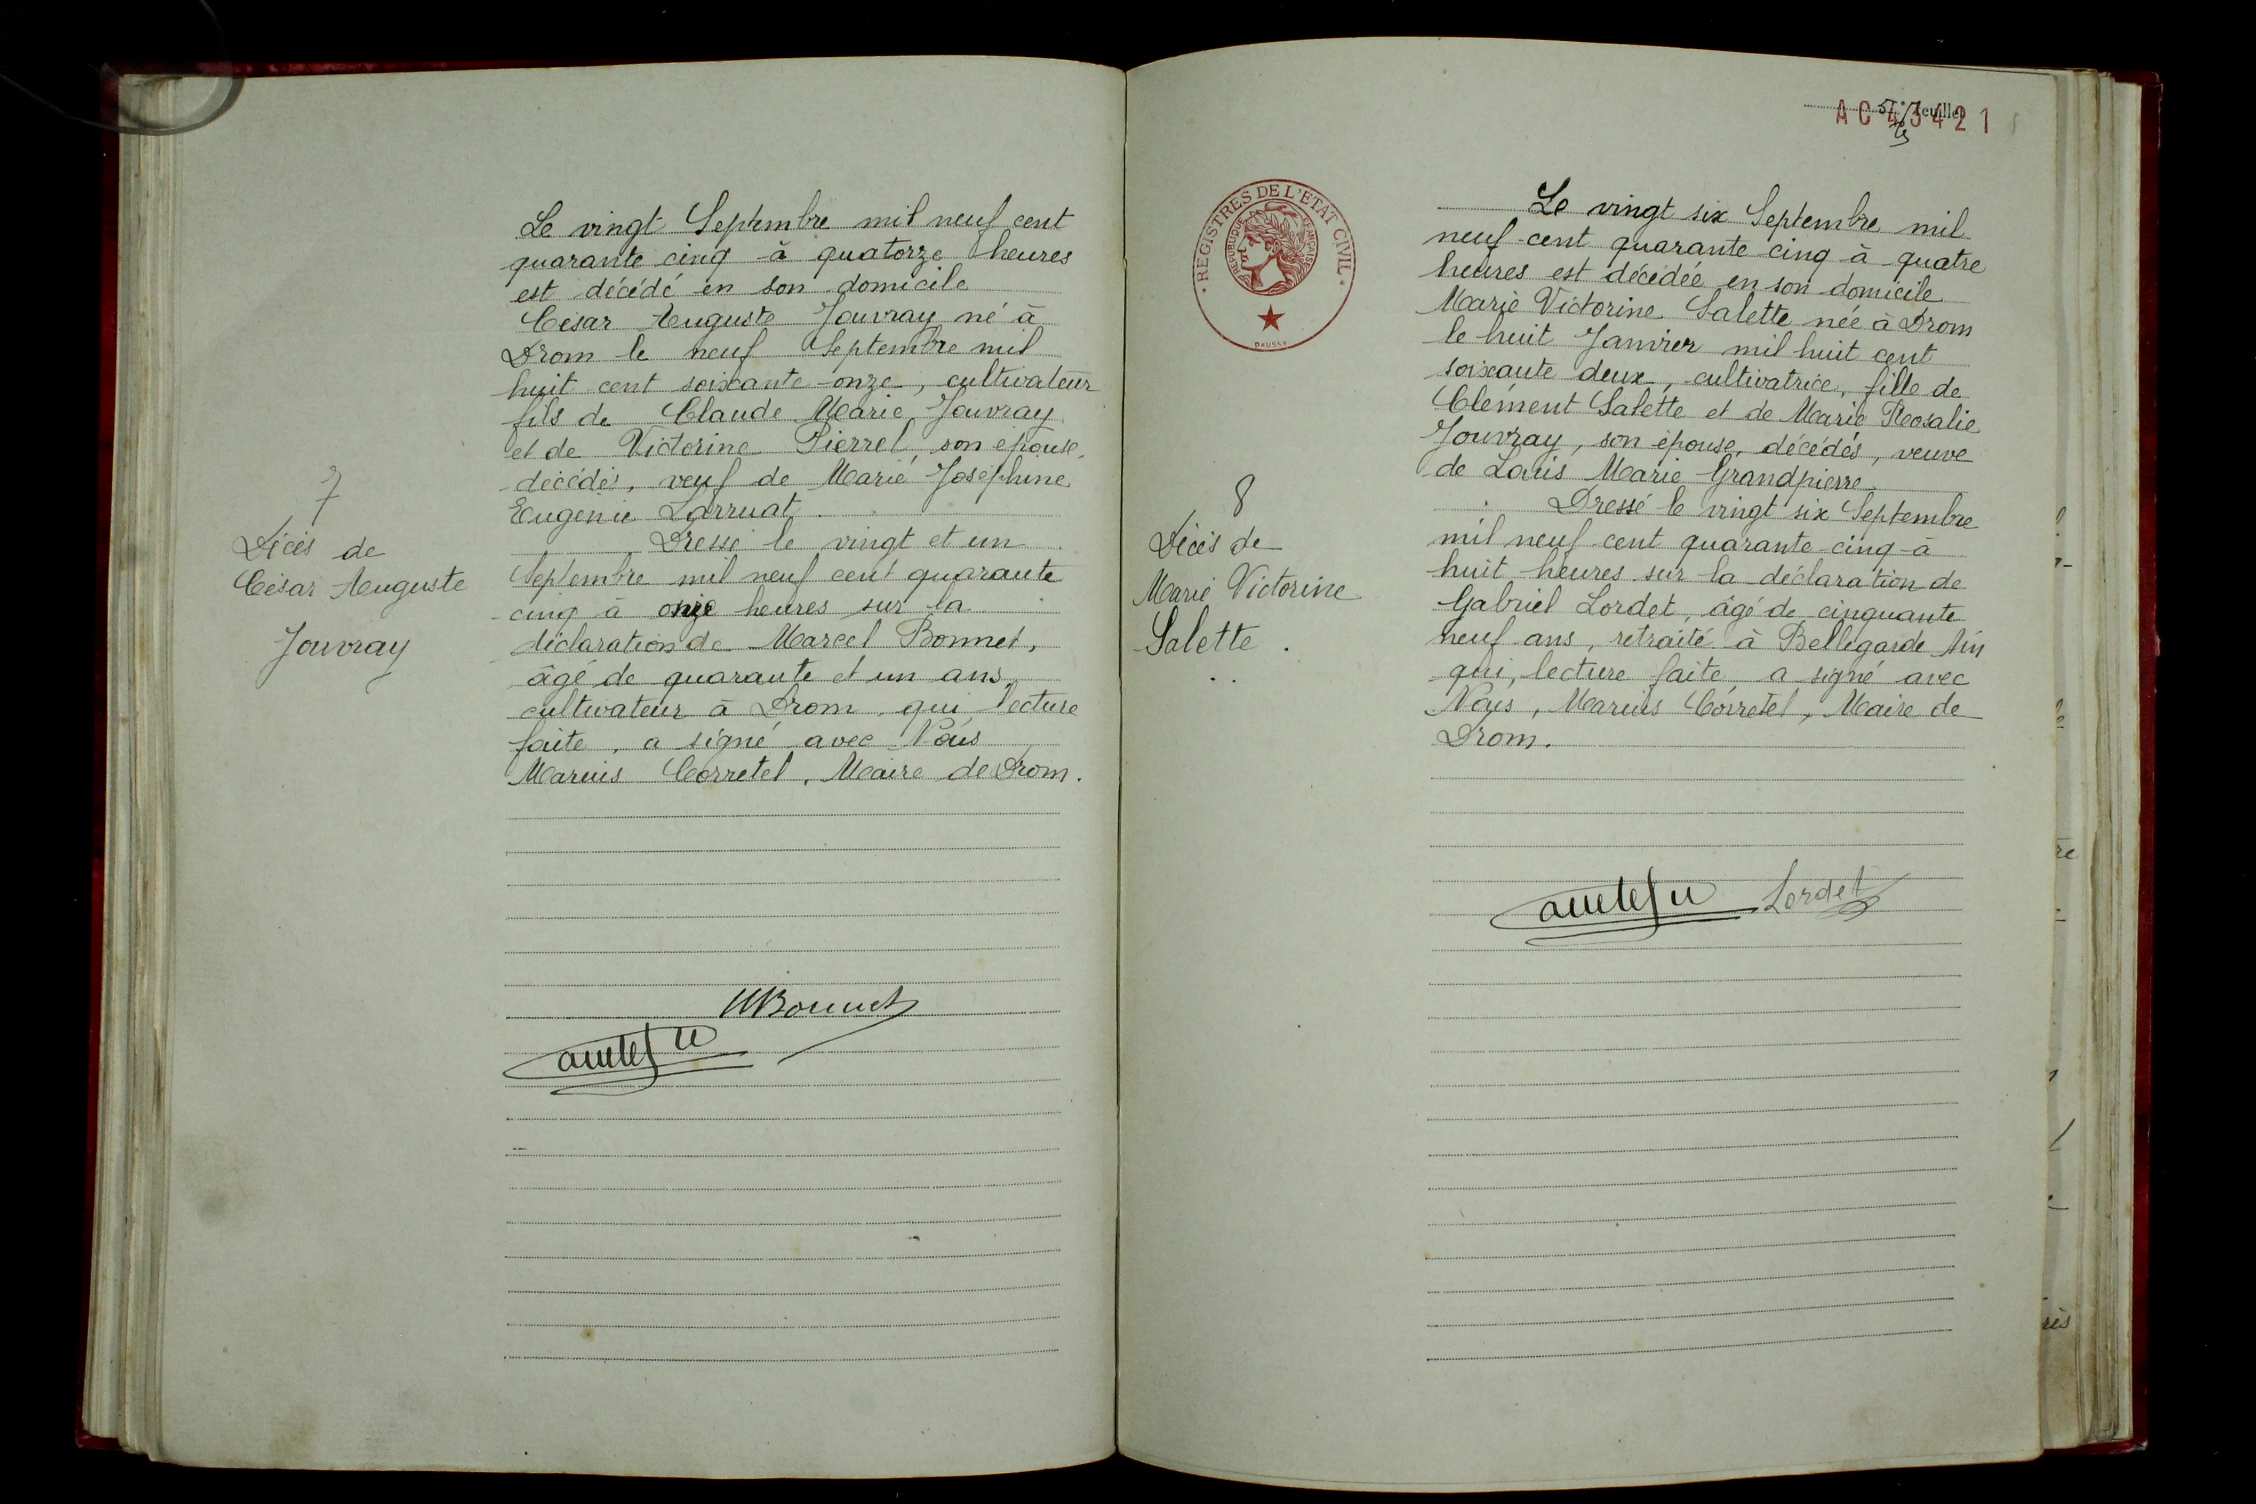 7
Décès de
César Auguste
Jouvray
Le vingt Septembre mil neuf cent
quarante cinq à quatorze heures
est décédé en son domicile
César Auguste Jouvray né à
Drom le neuf Septembre mil
huit cent soixante-onze, cultivateur
fils de Claude Marie Jouvray
et de Victorine Pierrel, son épouse,
décédés, veuf de Marie Joséphine
Eugénie Larruat.
Dressé le vingt et un
Septembre mil neuf cent quarante
cinq à onze heures sur la
déclaration de Marcel Bonnet,
âgé de quarante et un ans,
cultivateur à Drom, qui lecture
faite, a signé avec Nous
Marius Corretel, Maire de Drom.
MBonnet
feuillet
AC43421
REGISTRES DE L'ETAT CIVIL
REPUBLIQUE FRANÇAISE
8
Décès de
Marie Victorine
Salette.
Le vingt six Septembre mil
neuf cent quarante cinq à quatre
heures est décédée en son domicile
Marie Victorine Salette née à Drom
le huit Janvier mil huit cent
soixante deux, cultivatrice, fille de
Clément Salette et de Marie Rosalie
Jouvray, son épouse, décédés, veuve
de Louis Marie Grandpierre.
Dressé le vingt six Septembre
mil neuf cent quarante-cinq à
huit heures sur la déclaration de
Gabriel Lordet, âgé de cinquante
neuf ans, retraité à Bellegarde Ain
qui, lecture faite a signé avec
Nous, Marius Corretel, Maire de
Drom.
Lordet